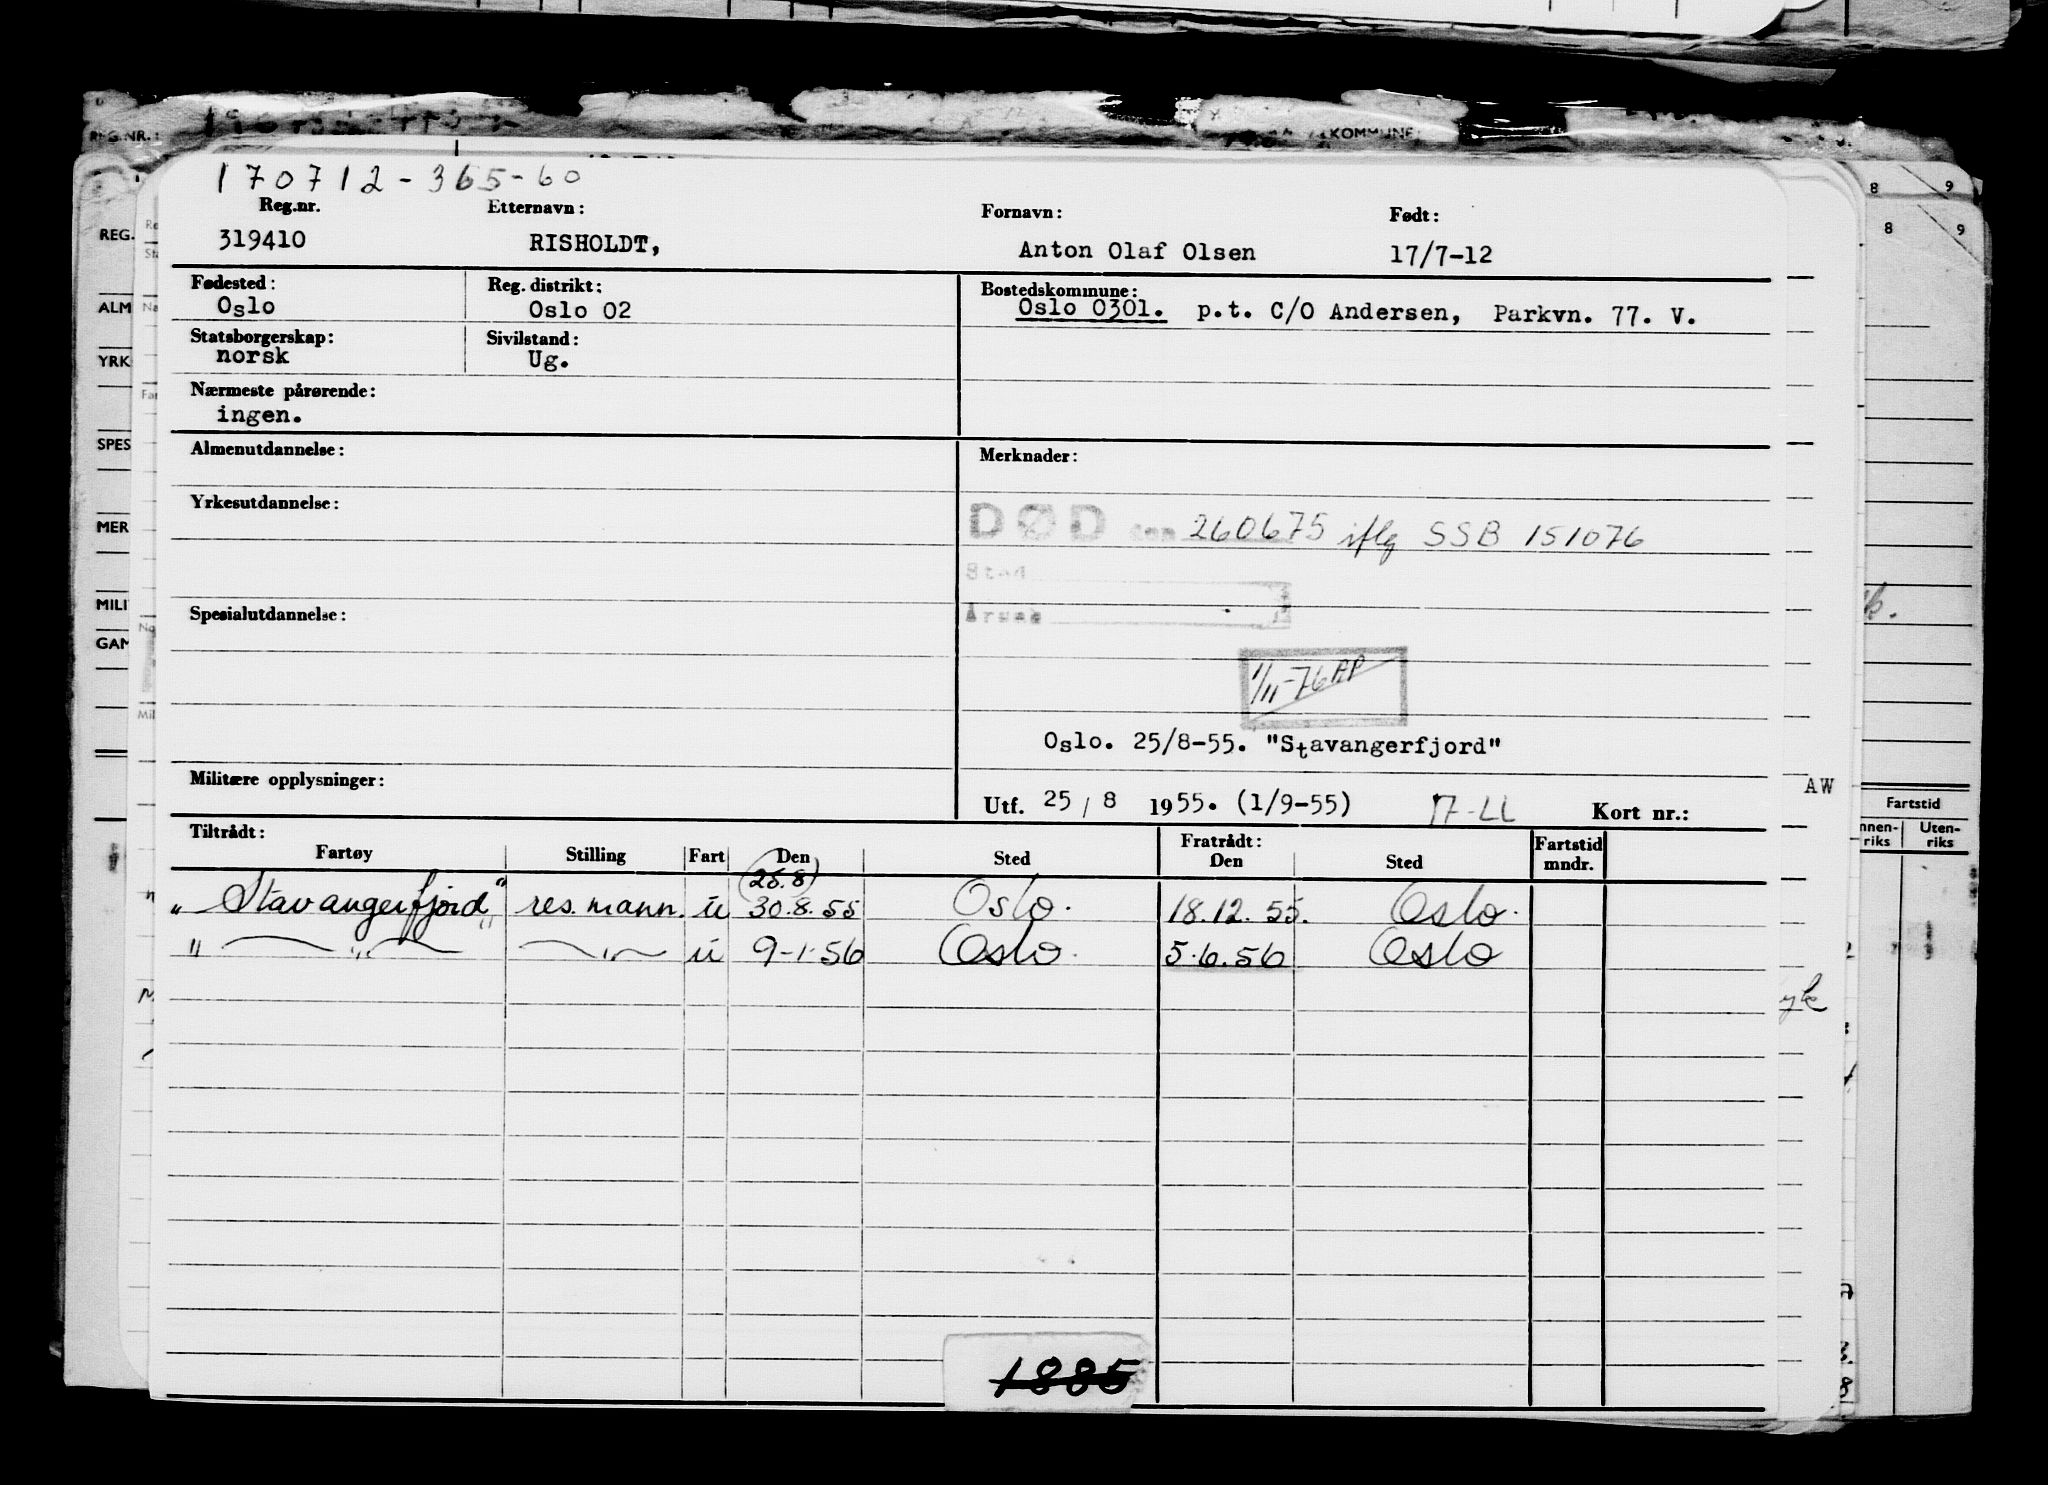 KOMMUNE
REG.NR.:
170712-365-60
Reg.nr. Etternavn: Fornavn: Født:
319410 RISHOLDT, Anton Olaf Olsen 17/7-12
Fødested: Reg. distrikt: Bostedskommune:
Oslo Oslo 02 Oslo 0301. p.t. C/O Andersen, Parkvn. 77. V.
Statsborgerskap: Sivilstand:
norsk Ug.
Nærmeste pårørende:
ingen.
Almenutdannelse: Merknader:
Yrkesutdannelse:
DØD den 260675 iflg SSB 151076
Sted
Årsak
Spesialutdannelse:
1/11-76 AP
Oslo. 25/8-55. "Stavangerfjord"
Militære opplysninger: AW
Utf. 25/8 1955. (1/9-55) Kort nr.:
Tiltrådt: Fratrådt:
Fartøy Stilling Fart Den Sted Den Sted Fartstid mndr.
(25.8)
"Stavangerfjord" res.mann. u 30.8.55 Oslo. 18.12.55. Oslo.
" — " — — " — u 9-1-56 Oslo. 5.6.56 Oslo
1885
REG.
ALM
YRK
SPES
MER
MILI
GAM
8 9
8 9
Fartstid
nnen-riks Uten-riks